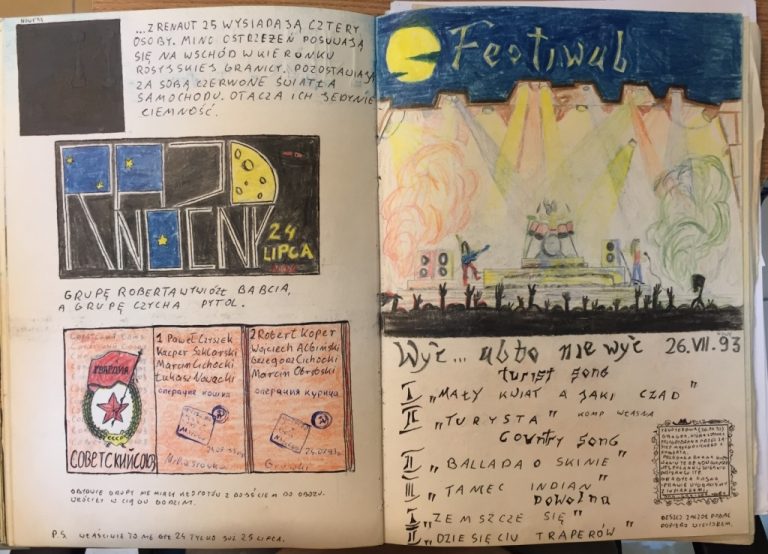 ...Z RENAUT 25 WYSIADAJĄ CZTERY
OSOBY. MIMO OSTRZEŻEŃ POSUWAJĄ
SIĘ NA WSCHÓD W KIERUNKU
ROSYJSKIEJ GRANICY. POZOSTAWIAJĄ
ZA SOBĄ CZERWONE ŚWIATŁA
SAMOCHODU. OTACZA ICH JEDYNIE
CIEMNOŚĆ.
RAJD
NOCNY
24
LIPCA
GRUPĘ ROBERTA WYWIÓZŁ BABCIA,
A GRUPĘ CZYCHA PYTOL.
1 Paweł Czyżek
Kacper Szklarski
Marcin Cichocki
Łukasz Nowacki
операция кошка
2 Robert Koper
Wojciech Albiński
Grzegorz Cichocki
Marcin Obrębski
операция курица
ГВАРДИЯ
СССР
СОВЕТСКИЙ СОЮЗ
OBYDWIE GRUPY NIE MIAŁY KŁOPOTÓW Z DOJŚCIEM DO OBOZU.
WRÓCIŁY W CIĄGU GODZIN.
P.S. WŁAŚCIWIE TO NIE BYŁ 24 TYLKO JUŻ 25 LIPCA.
Festiwal
Wyć... albo nie wyć 26.VII.93
turist song
I „MAŁY KWIAT A JAKI CZAD"
II „TURYSTA" KOMP WŁASNA
Country song
I „BALLADA O SKINIE"
II „TANIEC INDIAN"
Dowolna
I „ZEMSZCZĘ SIĘ"
II „DZIESIĘCIU TRAPERÓW"
DESZCZ ZACZĄŁ PADAĆ
DOPIERO WIECZOREM.